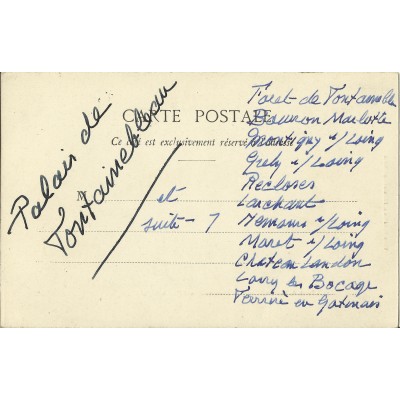 CARTE POSTALE
Ce côté est exclusivement réservé
Palais de
Fontainebleau
M
et
suite - 7
Foret de Fontainebl
Bourron Marlotte
Montigny s/Loing
Grez s/Loing
Recloses
Larchant
Nemours s/Loing
Moret s/Loing
Chateau Landon
Lorry les Bocage
Ferrière en Gatinais